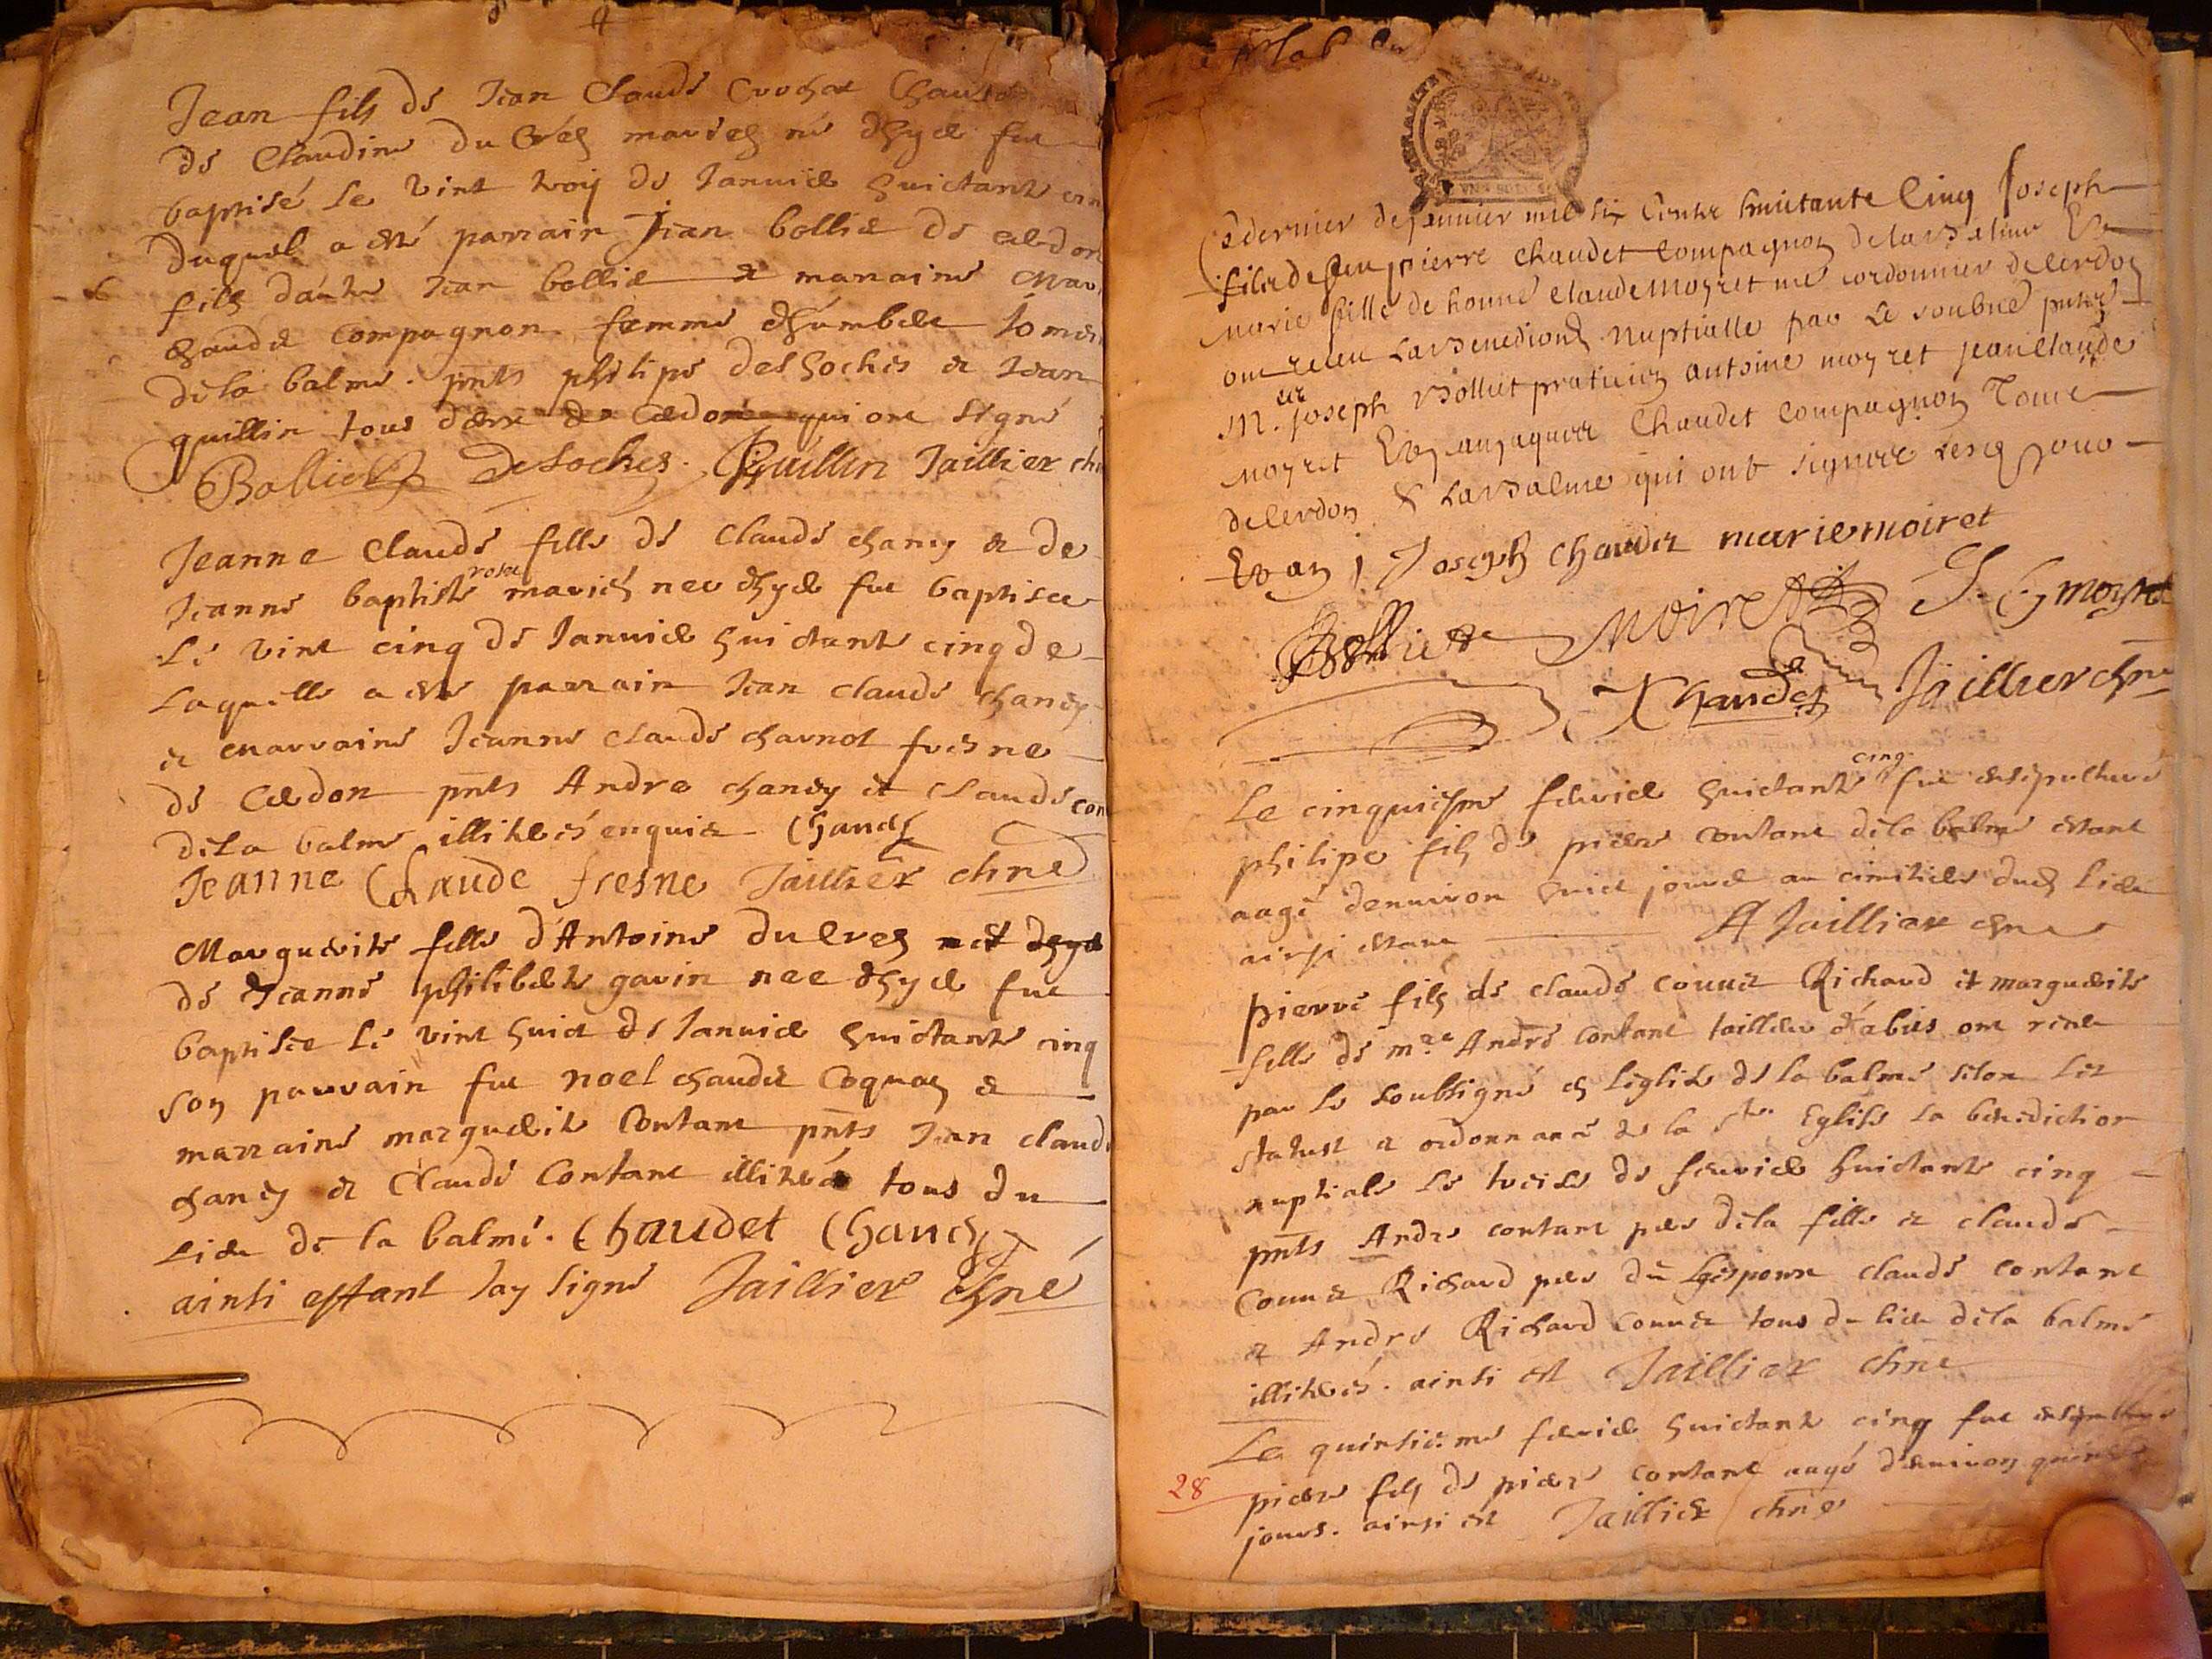 Jean fils de Jean Claude Crochat
de Claudine du Crés mariés né d'hyer fut
baptisé le vint troij de Janvier huictante
duquel a esté parrain Jean bolliet de cerdon
fils d'autre Jean bolliet et marraine
chaudet compagnon femme d'humbert
de la balme. pnts philipe desoches et Jean
guillin tous deux de Cerdon qui ont signé
Bolliet DeSoches. JGuillin Jaillier
Jeanne Claude fille de Claude chaney et de
Jeanne baptiste rosset mariés nee d'hyer fut baptisee
Le vint cinq de Janvier huictante cinq de
Laquelle a esté parrain Jean claude chaney
et marraine Jeanne claude charnot fresne
de Cerdon pnts Andre chaney et Claude
de La balme illiterés enquis Chaney
Jeanne Claude fresne Jaillier chne
Marguerite fille d'Antoine du Crés et
de Jeanne philiberte gavin nee d'hyer fut
baptisee Le vint huict de Janvier huictante cinq
son parrain fut noel chaudet Coquaz et
marraine marguerite Contant pnts Jean claude
chaney et Claude Contant illiteré tous du
Lieu de la balme. Chaudet Chaney
ainsi estant Jay signé Jaillier chne
Ce dernier de Januier mil six Cents huictante Cinq Joseph
fils de feu pierre Chaudet Compagnon de la balme Et
Marie fille de honné Claude Moyret me cordonnier de Cerdon
ont receu La benediction Nuptialle par Le soubné pnts
M.re Joseph Bolliet praticien antoine moyret jean Claude
moyret Et Chaudet Compagnon Tous
de Cerdon & La balme qui ont signéz
Joseph Chaudet marie moiret
Bolliet Moiret J. C. moyret
Chaudet Jaillier chne
Le cinquiesme feuvrier huictante cinq fut ensepulturé
philipe fils de pierre contant de la balme estant
aagé denuiron huict jours au cimitiere dud Lieu
ainsi estant A Jaillier chne
pierre fils de claude Couuet Richard et marguerite
fille de m.re André Contant tailleur d'abits ont receu
par le soubsigné en Leglise de la balme selon Les
statust et ordonnance de la Ste Eglise La benediction
nuptiale Le treise de feuvrier huictante cinq
pnts Andre contant pere de la fille et claude
Couuet Richard pere du Lespoux claude Contant
et Andre Richard Couuet tous du lieu de la balme
illiterés. ainsi est Jaillier chne
Le quinsieme feuvrier huictante cinq fut ensepulturé
28
pierre fils de pierre contant aagé d'enuiron quinse
jours. ainsi est Jaillier chne